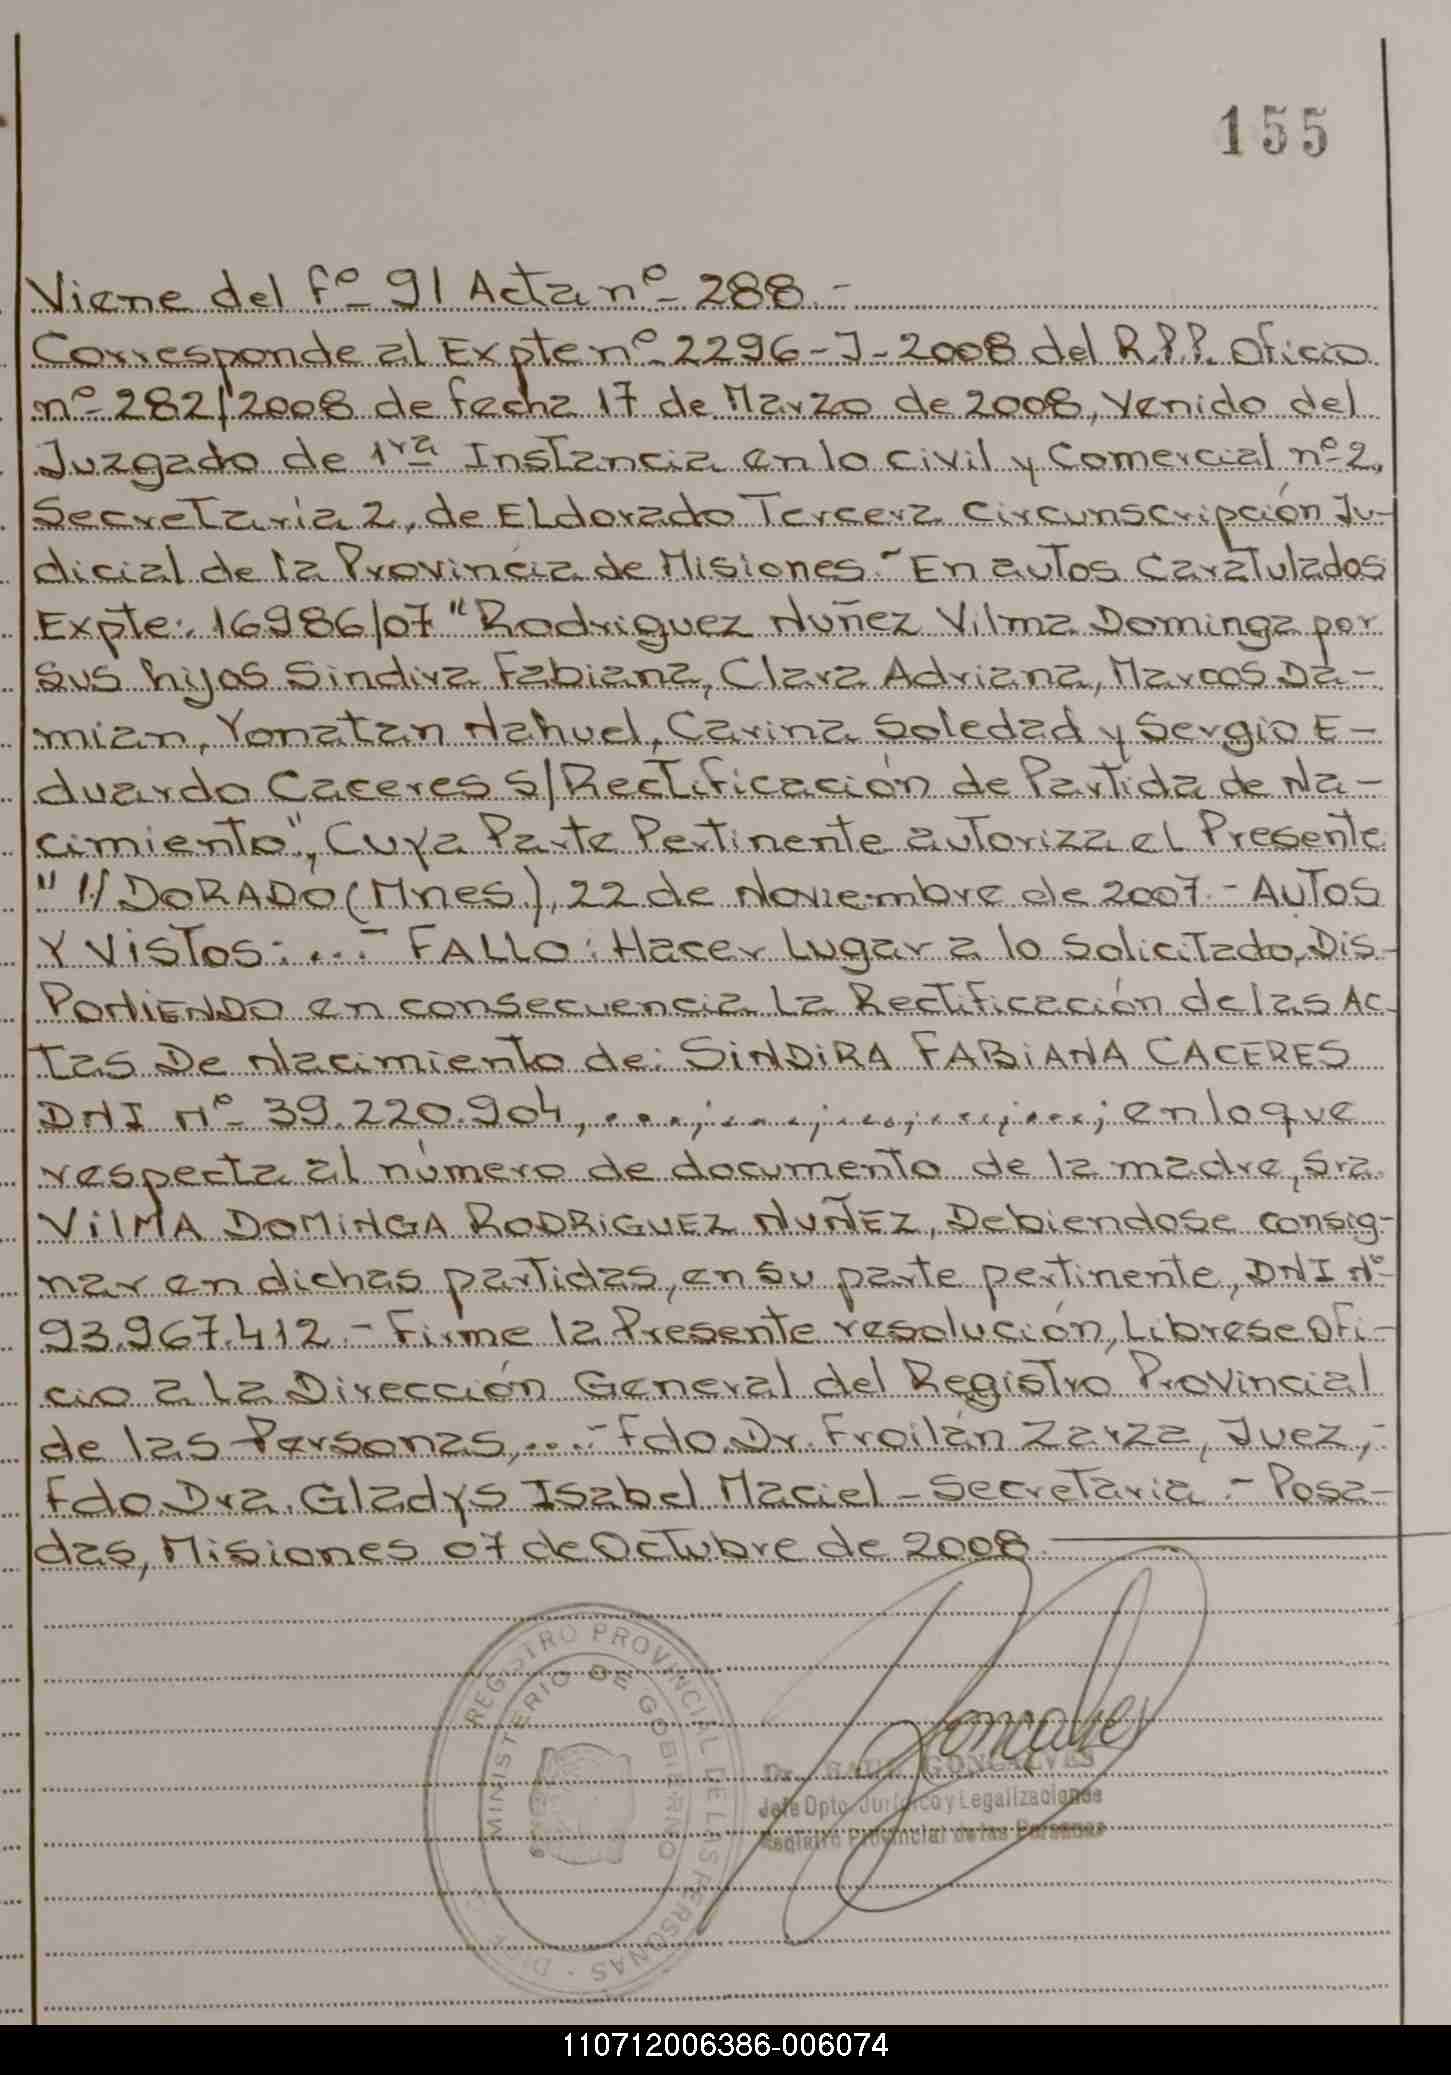 155
Viene del fº 91 Acta nº 288.-
Corresponde al Expte nº 2296-J-2008 del R.P.P. Oficio
nº 282/2008 de fecha 17 de Marzo de 2008, Venido del
Juzgado de 1ra Instancia en lo civil y Comercial nº 2,
Secretaría 2, de ELdorado Tercera Circunscripción Ju-
dicial de la Provincia de Misiones.- En autos Caratulados
Expte: 16986/07 "Rodriguez Nuñez Vilma Dominga por
sus hijos Sindira Fabiana, Clara Adriana, Marcos Da-
mian, Yonatan Nahuel, Carina Soledad y Sergio E-
duardo Caceres S/Rectificación de Partida de Na-
cimiento", Cuya Parte Pertinente autoriza el Presente
" 1:/DORADO (Mnes.), 22 de Noviembre de 2007.- AUTOS
Y VISTOS:...- FALLO: Hacer Lugar a lo Solicitado, Dis-
PONIENDO en consecuencia La Rectificación de las Ac-
tas De Nacimiento de: SINDIRA FABIANA CACERES
DNI Nº 39.220.904, ....;...;....;....;....; en lo que
respecta al número de documento de la madre, Sra.
VILMA DOMINGA RODRIGUEZ NUÑEZ, Debiendose consig-
nar en dichas partidas, en su parte pertinente, DNI Nº
93.967.412.- Firme la Presente resolución, Librese Ofi-
cio a La Dirección General del Registro Provincial
de las Personas,...- Fdo. Dr. Froilán Zarza, Juez,-
Fdo Dra. Gladys Isabel Maciel - Secretaria.- Posa-
das, Misiones 07 de Octubre de 2008.
REGISTRO PROVINCIAL DE LAS PERSONAS
MINISTERIO DE GOBIERNO
Dr. RAUL GONCALVES
Jefe Dpto. Jurídico y Legalizaciones
Registro Provincial de las Personas
110712006386-006074